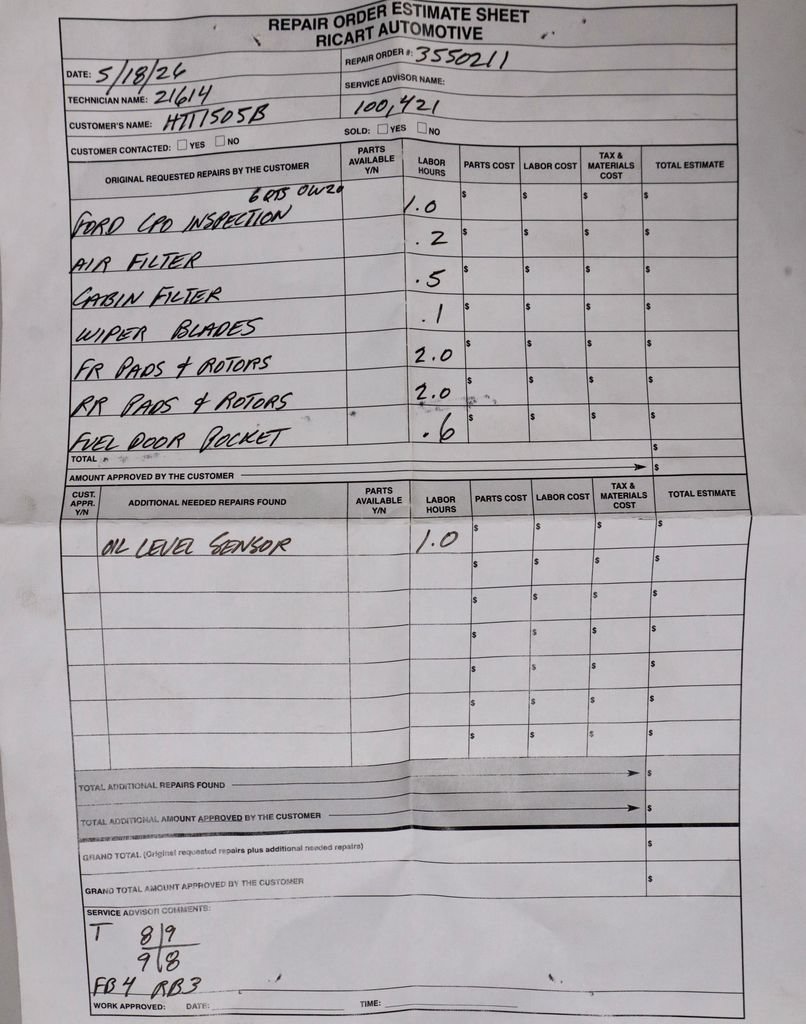 REPAIR ORDER ESTIMATE SHEET
RICART AUTOMOTIVE
DATE: 5/18/26 REPAIR ORDER #: 3550211
TECHNICIAN NAME: 21614 SERVICE ADVISOR NAME:
CUSTOMER'S NAME: HTT1505B 100,421
CUSTOMER CONTACTED: YES NO SOLD: YES NO
ORIGINAL REQUESTED REPAIRS BY THE CUSTOMER PARTS AVAILABLE Y/N LABOR HOURS PARTS COST LABOR COST TAX & MATERIALS COST TOTAL ESTIMATE
6 QTS 0W20
FORD CPO INSPECTION 1.0 $ $ $ $
AIR FILTER .2 $ $ $ $
CABIN FILTER .5 $ $ $ $
WIPER BLADES .1 $ $ $ $
FR PADS & ROTORS 2.0 $ $ $ $
RR PADS & ROTORS 2.0 $ $ $ $
FUEL DOOR POCKET .6 $ $ $ $
TOTAL $
AMOUNT APPROVED BY THE CUSTOMER $
CUST. APPR. Y/N ADDITIONAL NEEDED REPAIRS FOUND PARTS AVAILABLE Y/N LABOR HOURS PARTS COST LABOR COST TAX & MATERIALS COST TOTAL ESTIMATE
OIL LEVEL SENSOR 1.0 $ $ $ $
$ $ $ $
$ $ $ $
$ $ $ $
$ $ $ $
$ $ $ $
$ $ $ $
TOTAL ADDITIONAL REPAIRS FOUND $
TOTAL ADDITIONAL AMOUNT APPROVED BY THE CUSTOMER $
GRAND TOTAL (Original requested repairs plus additional needed repairs) $
GRAND TOTAL AMOUNT APPROVED BY THE CUSTOMER $
SERVICE ADVISOR COMMENTS:
T 8 9
9 8
FB4 RB3
WORK APPROVED: DATE: TIME: